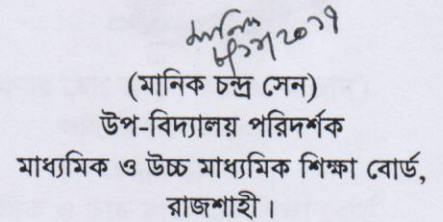 মানিক
(মানিক চন্দ্র সেন)
উপ-বিদ্যালয় পরিদর্শক
মাধ্যমিক ও উচ্চ মাধ্যমিক শিক্ষা বোর্ড,
রাজশাহী।